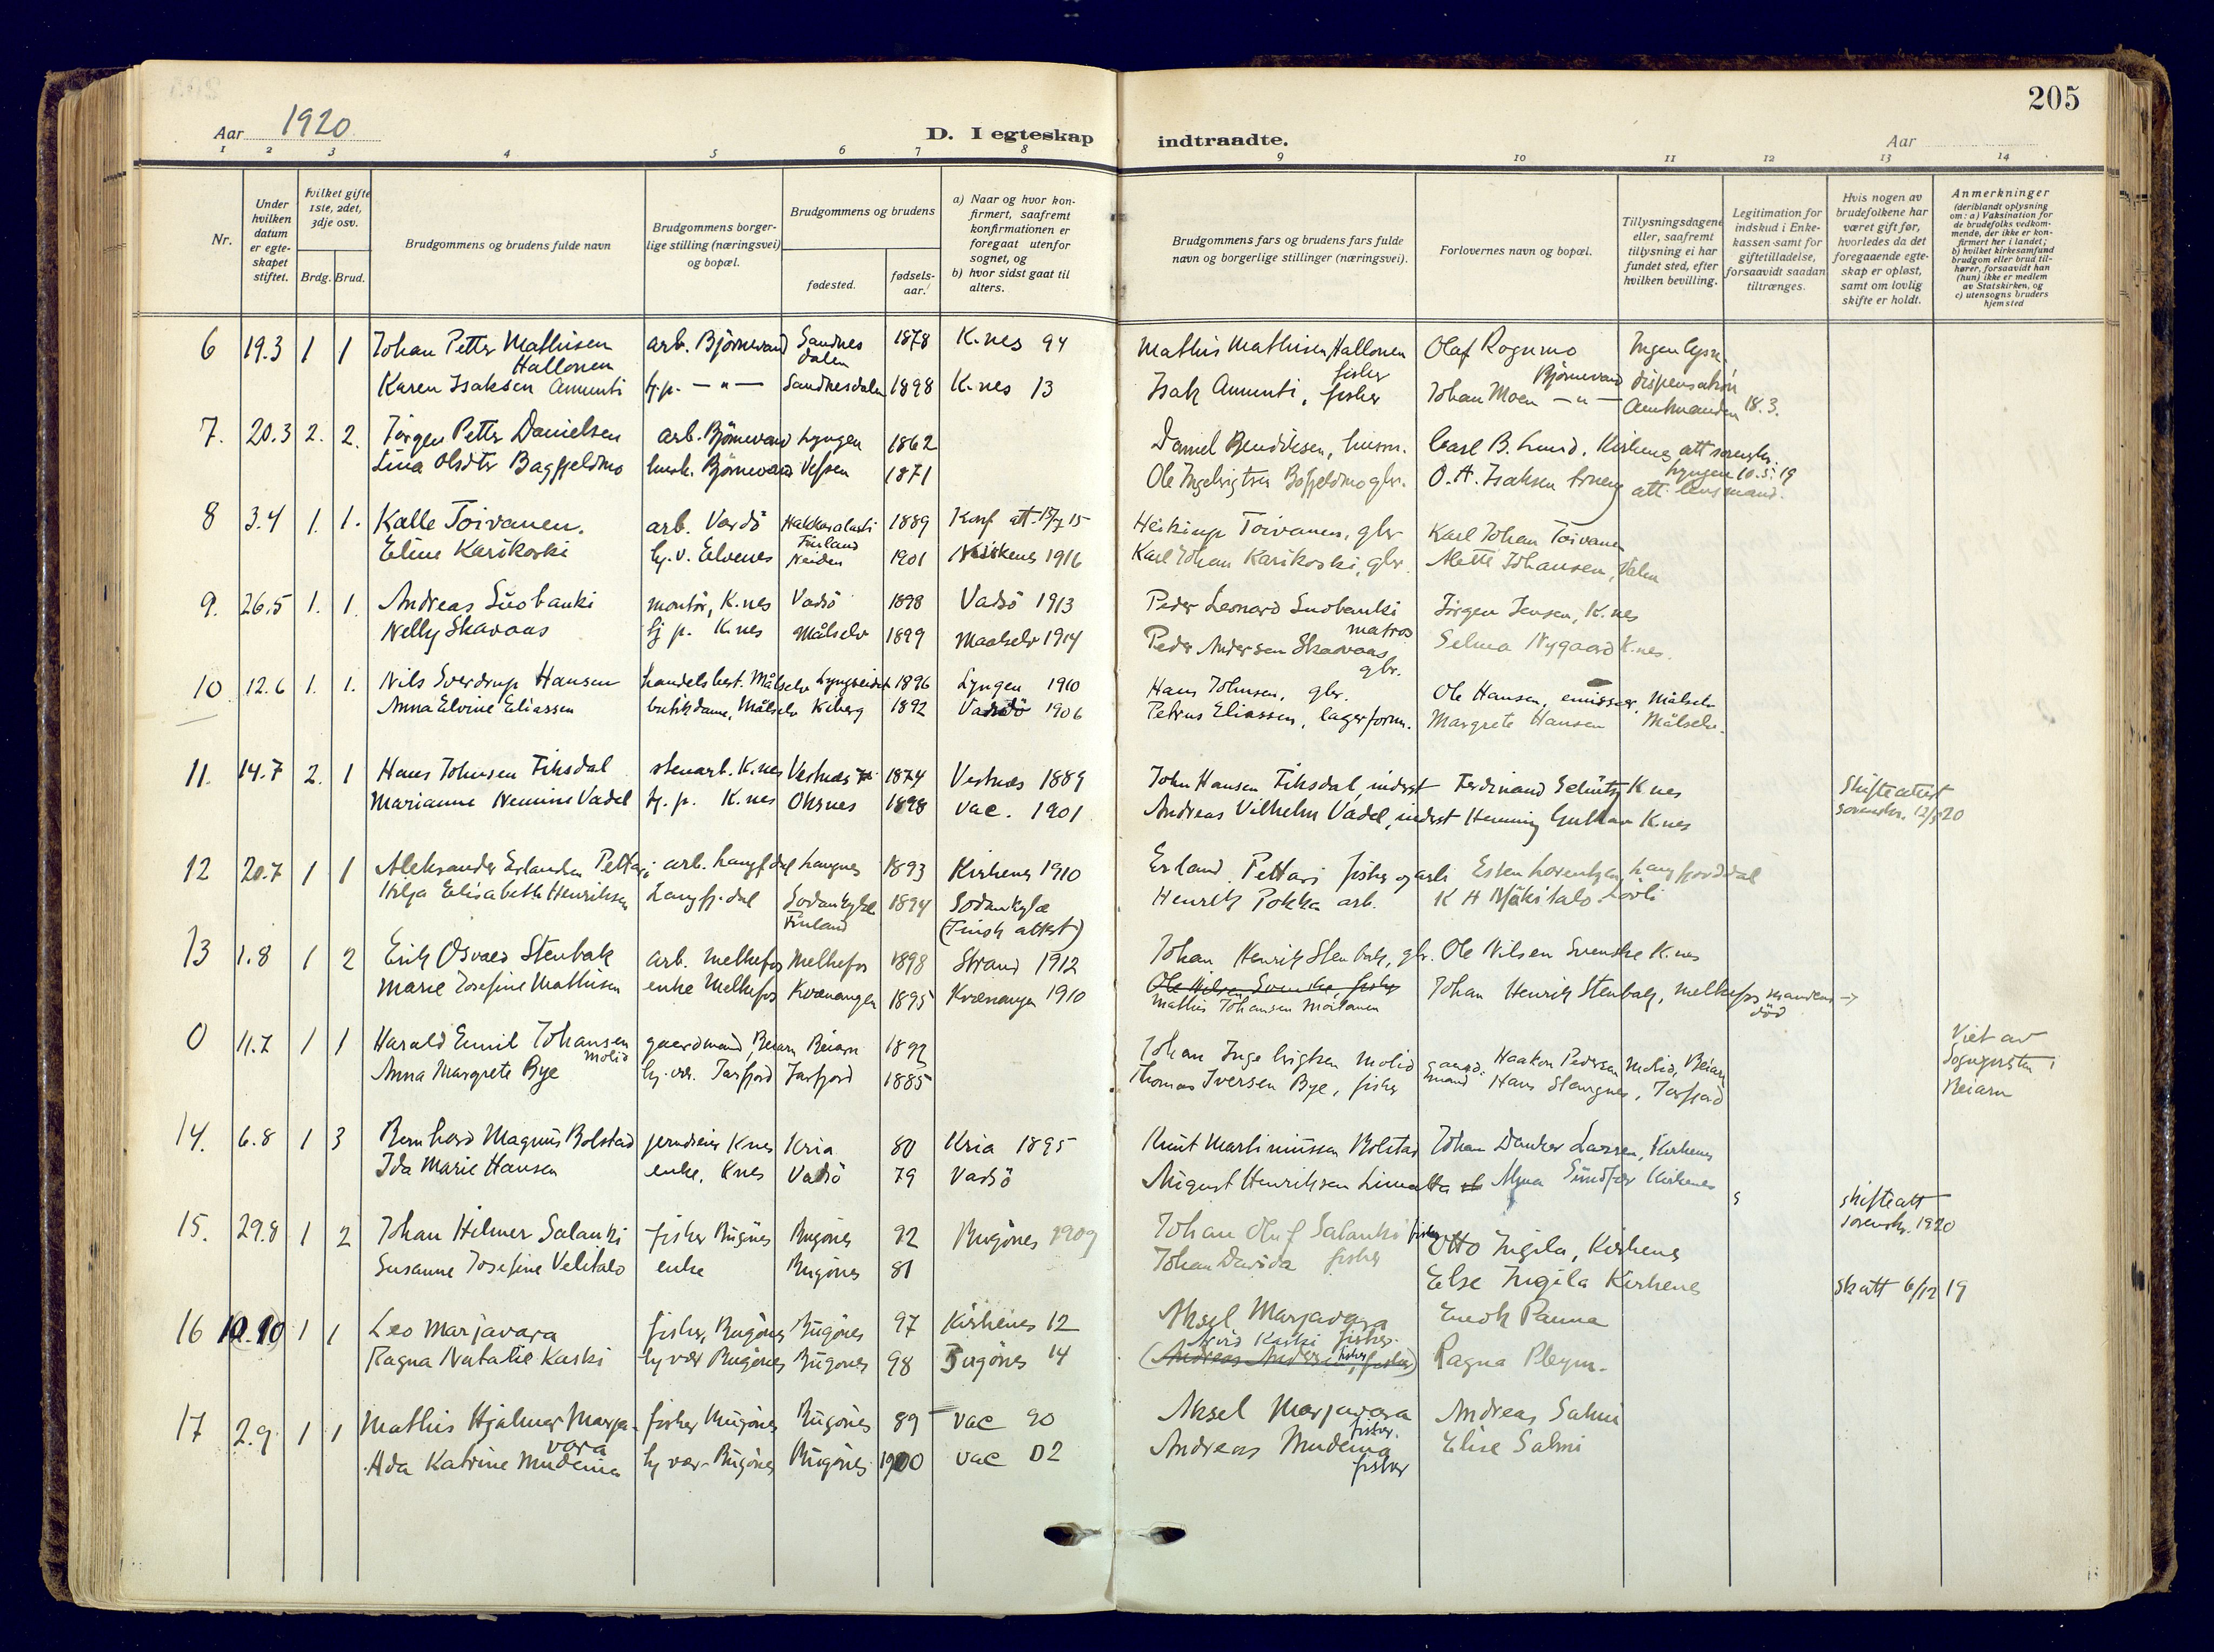 205
Aar 1920
D. I egteskap indtraadte.
Aar
1 2 3 4 5 6 7 8 9 10 11 12 13 14
Nr.
Under hvilken datum er egteskapet stiftet.
hvilket gifte 1ste, 2det, 3dje osv.
Brdg. Brud.
Brudgommens og brudens fulde navn
Brudgommens borgerlige stilling (næringsvei) og bopæl.
Brudgommens og brudens
fødested.
fødselsaar.
a) Naar og hvor konfirmert, saafremt konfirmationen er foregaat utenfor sognet, og
b) hvor sidst gaat til alters.
Brudgommens fars og brudens fars fulde navn og borgerlige stillinger (næringsvei).
Forlovernes navn og bopæl.
Tillysningsdagene eller, saafremt tillysning ei har fundet sted, efter hvilken bevilling.
Legitimation for indskud i Enkekassen samt for giftetilladelse, forsaavidt saadan tiltrænges.
Hvis nogen av brudefolkene har været gift før, hvorledes da det foregaaende egteskap er opløst, samt om lovlig skifte er holdt.
Anmerkninger (deriblandt oplysning om: a) Vaksination for de brudefolks vedkommende, der ikke er konfirmert her i landet; b) hvilket kirkesamfund brudgom eller brud tilhører, forsaavidt han (hun) ikke er medlem av Statskirken, og c) utensogns bruders hjemsted
6 19.3 1 1 Johan Petter Mathisen Hallonen arb. Bjørnevand Sandnesdalen 1878 K.nes 94 Mathis Mathisen Hallonen fisker Olaf Rognmo Bjørnevand Ingen lysn. dispensation
Karen Isaksen Ammunti hj.p. — " — Sandnesdalen 1898 K.nes 13 Isak Ammunti, fisker Johan Moen — " — Amtmanden 18.3.
7. 20.3 2. 2. Jörgen Petter Danielsen arb. Bjørnevand Lyngen 1862 Daniel Bendiksen, husm. Carl B. Lund, Kirkenes att sorenskr. Lyngen 10.5.19
Lina Olsdtr Bagfjeldmo hush. Bjørnevand Vefsen 1871 Ole Ingebrigtsen gbr. O. A. Isaksen att lensmand.
8 3.4 1. 1. Kalle Toivanen. arb. Vardö Finland 1889 Konf att. 15/7 15 Toivanen, gbr Karl Johan Toivanen
Eline Karikoski hj.v. Elvenes Neiden 1901 Kirkenes 1916 Karl Johan Karikoski, gbr. Mette Johansen,
9. 26.5 1. 1. Andreas Suobanki montör, K.nes Vadsö 1898 Vadsö 1913 Peder Leonard Suobanki matros Jörgen Jensen, K.nes
Nelly Skavaas hj p. K.nes Målselv 1899 Maalselv 1914 Peder Andersen Skavaas gbr. Selma Nygaard K.nes.
10 12.6 1. 1. Nils Sverdrup Hansen handelsbest. Målselv Lyngseidet 1896 Lyngen 1910 Hans Johnsen, gbr. Ole Hansen, emissær, Målselv
Anna Elvine Eliassen butikdame, Målselv Kiberg 1892 Vadsö 1906 Petrus Eliassen, lagerform. Margrete Hansen Målselv.
11. 14.7 2. 1 Hans Johnsen Fiksdal stenarb. K.nes Vestnes 1874 Vestnes 1889 John Hansen Fiksdal, inderst Ferdinand Schütz K nes Skifteattest sorenskr. 12/7 20
Marianne Nemine Vadel hj. p. K.nes Öksnes 1898 vac. 1901 Andreas Vilhelm Vadel, inderst Henning Gultav K.nes
12 20.7 1 1 Aleksander Erlanden Pettari arb. Langfj.dal Langnes 1893 Kirkenes 1910 Erland Pettari fisker og arb Esten Lorentsen, Langfjorddal
Hilja Elisabeth Henriksen Langfj.dal Sodankylæ Finland 1894 Sodankylæ (Finsk attest) Henrik Pokka arb. K H Mäkitalo
13 1.8 1 2 Erik Osvald Stenbak arb. Melkefos Melkefos 1898 Strand 1912 Johan Henrik Stenbak, gbr. Ole Nilsen Svenske K.nes
Marie Josefine Mathisen enke Melkefos Kvænangen 1895 Kvænangen 1910 Ole Nilsen Svenske, fisker Johan Henrik Stenbak, Melkefos mandens död →
Mathis Johansen
0 11.7 1 1 Harald Emil Johansen Molid gaardmand, Beiarn Beiarn 1892 Johan Ingebrigtsen Molid gaardmand Haakon Pedersen Molid, Beiarn Viet av sognepresten i Beiarn
Anna Margrete Bye hj. vær. Jarfjord Jarfjord 1885 Thomas Iversen Bye, fisker Hans Slengnes, Jarfjord
14. 6.8 1 3 Bernhard Magnus Bolstad K.nes Kria 80 Kria 1895 Knut Martiniussen Bolstad Johan Danker Larsen, Kirkenes
Ida Marie Hansen enke, K.nes Vadsö 79 Vadsö August Henriksen Linnatta Alma Sundfær Kirkenes skifteatt sorenskr. 1920
15. 29.8 1 2 Johan Hilmer Salanki fisker Bugönes Bugönes 92 Bugönes 1909 Johan Oluf Salanki fisker Otto Ingila, Kirkenes
Susanne Josefine Velitalo enke Bugönes 81 Johan Davida fisker Else Ingila Kirkenes sk att 6/12 19
16 10.10 1 1 Leo Marjavara fisker, Bugönes Bugönes 97 Kirkenes 12 Aksel Marjavara fisker Enok Panna
Ragna Natalie Kaski hj vær Bugönes Bugönes 98 Bugönes 14 Arvid Kaski fisker Ragna Pleym.
17 2.9 1 1 Mathis Hjalmar Marjavara fisker Bugönes Bugönes 89 vac 90 Aksel Marjavara fisker. Andreas Salmi
Ada Katrine Mudenia hj vær Bugönes Bugönes 1900 vac 02 Andreas Mudenia fisker Elise Salmi